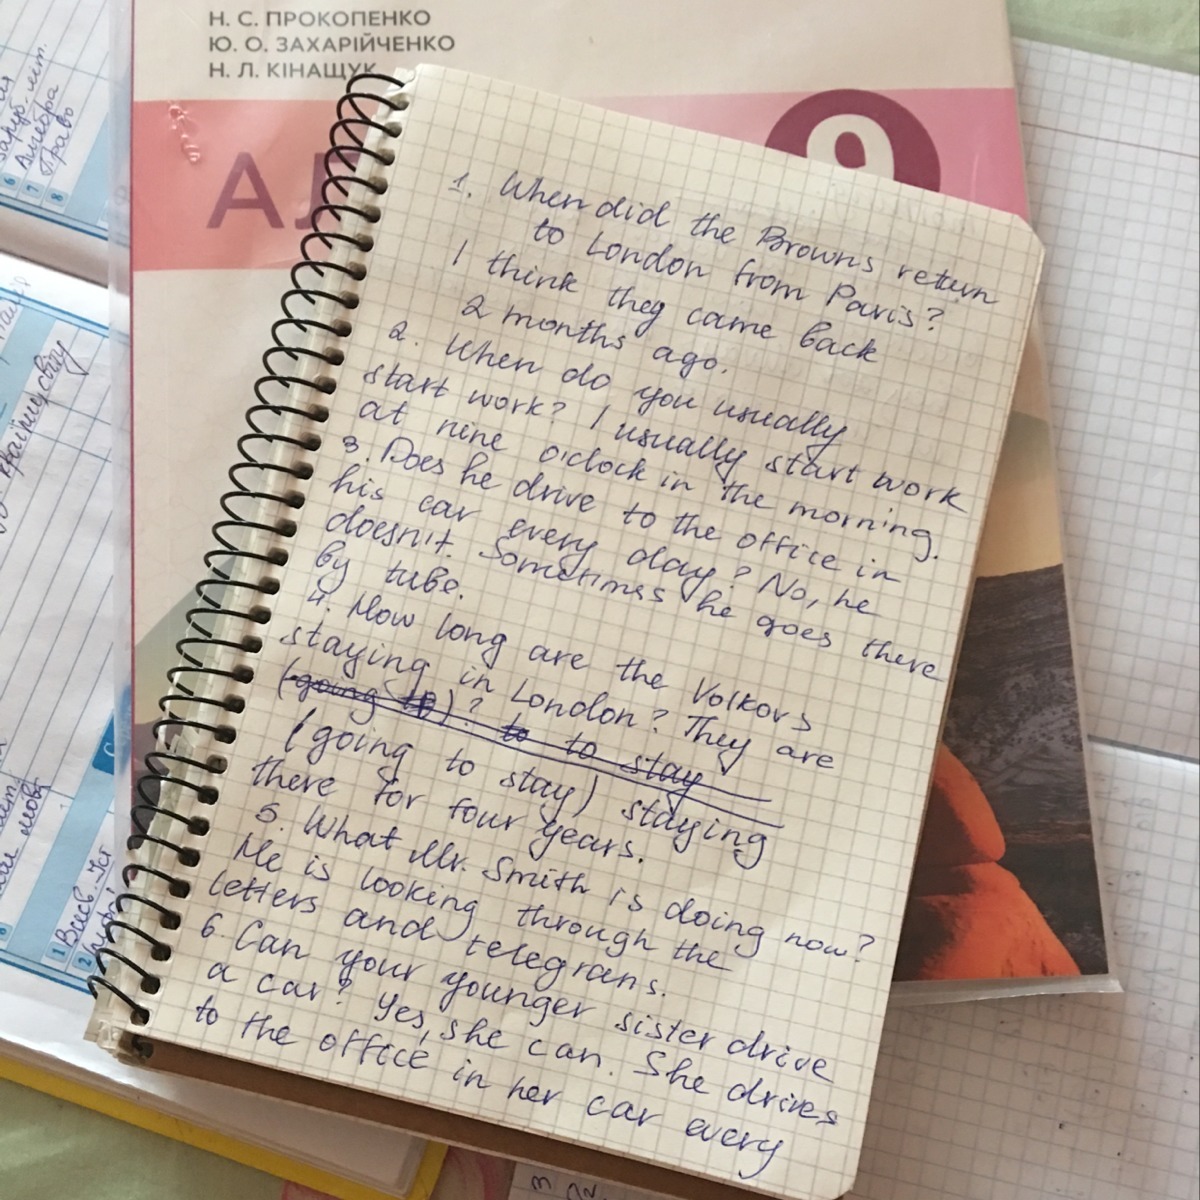 Н. С. ПРОКОПЕНКО
Ю. О. ЗАХАРІЙЧЕНКО
Н. Л. КІНАЩУК
9
1. When did the Browns return
to London from Paris?
I think they came back
2 months ago.
2. When do you usually
start work? I usually start work
at nine o'clock in the morning.
3. Does he drive to the office in
his car every day? No, he
doesn't. Sometimes he goes there
by tube.
4. How long are the Volkovs
staying in London? They are
(going to)? to to stay
(going to stay) staying
there for four years.
5. What Mr. Smith is doing now?
He is looking through the
letters and telegrans.
6. Can your younger sister drive
a car? Yes, she can. She drives
to the office in her car every
6
7 Алгебра
8 Право
1 Всесв. Іст
2